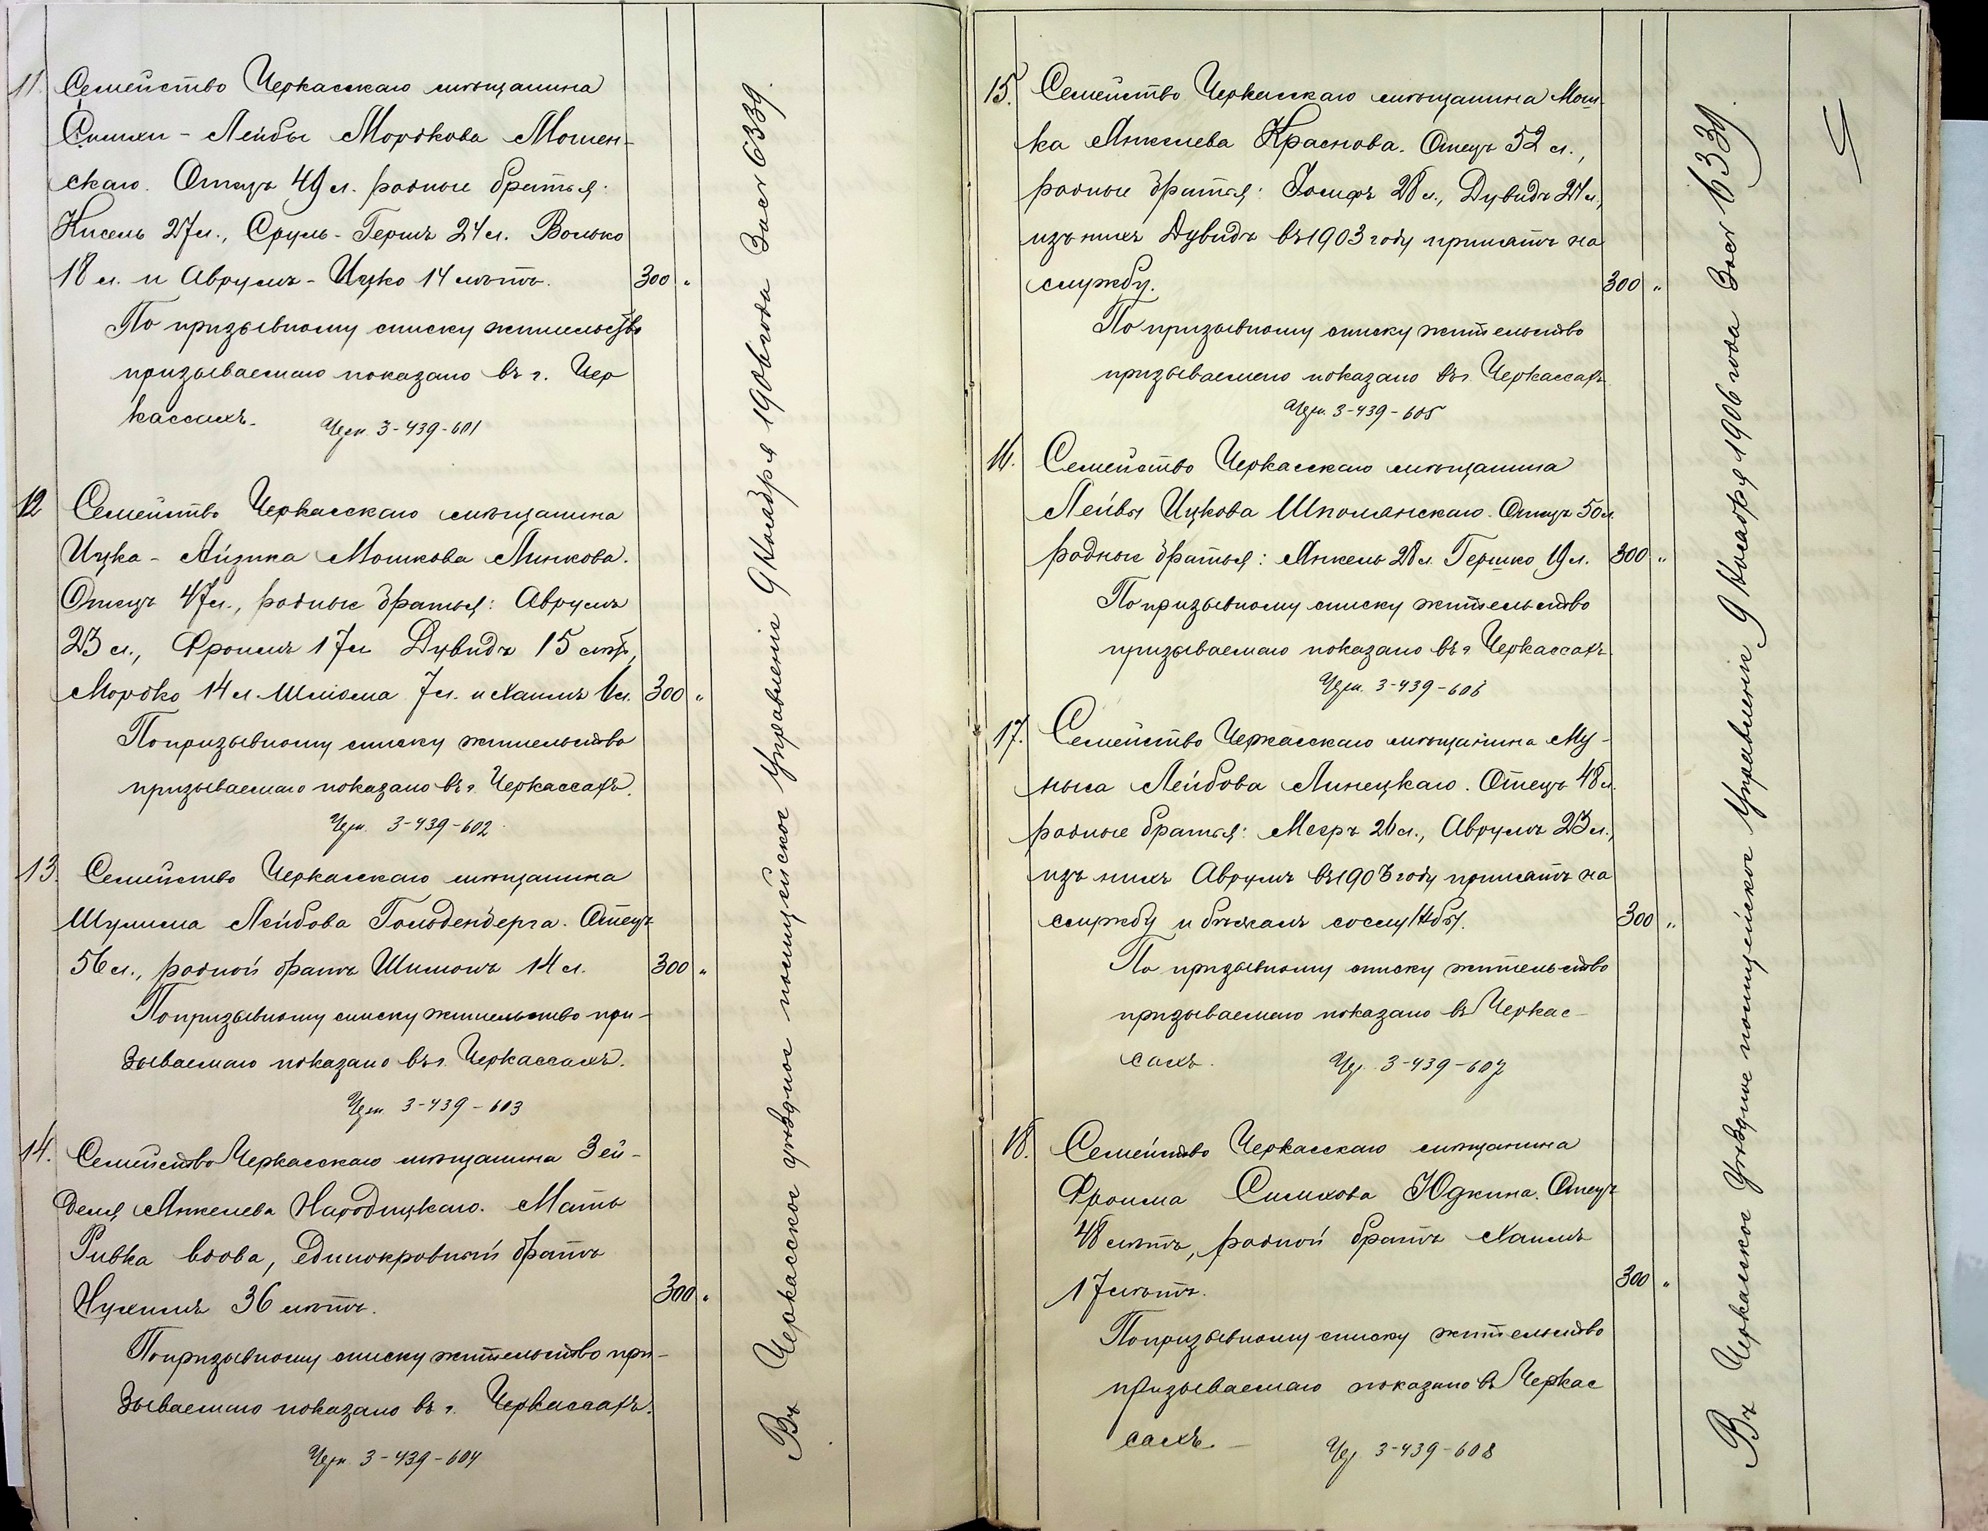 11. Семейство Черкасскаго мѣщанина
Симхи-Лейбы Мордкова Мошен-
скаго. Отецъ 49 л. родные братья:
Кисель 27 л., Сруль-Гершъ 24 л. Волько
18 л. и Аврумъ-Ицко 14 лѣтъ. 300 „
По призывному списку жительство
призываемаго показано въ г. Чер
кассахъ. Черк. 3-439-601
12 Семейство Черкасскаго мѣщанина
Ицка-Айзика Мошкова Линкова.
Отецъ 47 л., родные братья: Аврумъ
23 л., Фроимъ 17 л. Дувидъ 15 лѣтъ,
Мордко 14 л. Шлиома 7 л. и Хаимъ 6 л. 300 „
По призывному списку жительство
призываемаго показано въ г. Черкассахъ.
Черк. 3-439-602
13. Семейство Черкасскаго мѣщанина
Шулима Лейбова Гольденберга. Отецъ
56 л., родной братъ Шимонъ 14 л. 300 „
По призывному списку жительство при-
зываемаго показано въ г. Черкассахъ.
Черк. 3-439-603
14. Семейство Черкасскаго мѣщанина Зей-
деля Янкелева Народицкаго. Мать
Ривка вдова, единокровный братъ
Нухимъ 36 лѣтъ. 300 „
По призывному списку жительство при-
зываемаго показано въ г. Черкассахъ.
Черк. 3-439-604
Въ Черкасское уѣздное полицейское Управленіе 9 Ноября 1906 года За № 6339.
4
15. Семейство Черкасскаго мѣщанина Мош-
ка Янкелева Краснова. Отецъ 52 л.,
родные братья: Іосифъ 28 л., Дувидъ 24 л.,
изъ нихъ Дувидъ въ 1903 году принятъ на
службу. 300 „
По призывному списку жительство
призываемаго показано въ г. Черкассахъ
Черк. 3-439-605
16. Семейство Черкасскаго мѣщанина
Лейбы Ицкова Шполянскаго. Отецъ 50 л.
родные братья: Янкель 28 л. Гершко 19 л. 300 „
По призывному списку жительство
призываемаго показано въ г. Черкассахъ
Черк. 3-439-606
17. Семейство Черкасскаго мѣщанина Му-
ныса Лейбова Линецкаго. Отецъ 48 л.
родные братья: Мееръ 26 л., Аврумъ 23 л.,
изъ нихъ Аврумъ въ 1903 году принятъ на
службу и бѣжалъ со службы. 300 „
По призывному списку жительство
призываемаго показано въ Черкас-
сахъ. Чер. 3-439-607
18. Семейство Черкасскаго мѣщанина
Фроима Симхова Юдкина. Отецъ
48 лѣтъ, родной братъ Хаимъ
17 лѣтъ. 300 „
По призывному списку жительство
призываемаго показано въ Черкас
сахъ. - Чер. 3-439-608
Въ Черкасское Уѣздное полицейское Управленіе 9 Ноября 1906 года За № 6339.